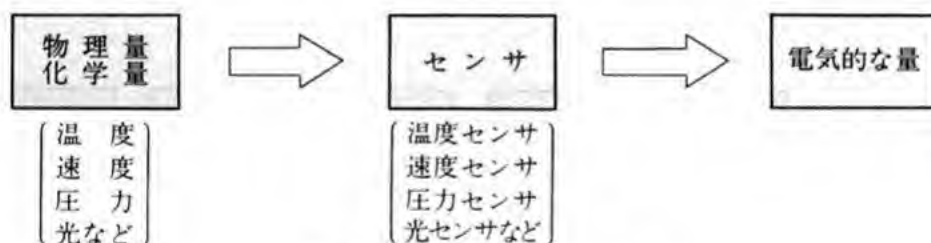 物理量
化学量
センサ
電気的な量
温度
速度
圧力
光など
温度センサ
速度センサ
圧力センサ
光センサなど